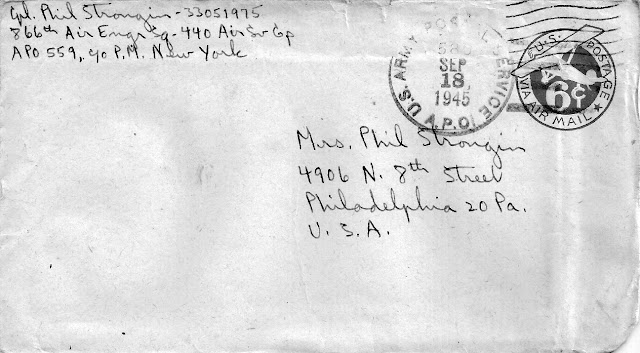 Cpl. Phil Strongin - 33051975
866th Air Engr Sq - 440 Air Sv Gp
APO 559, c/o P.M. New York
U.S. ARMY POSTAL SERVICE
SEP
18
1945
A.P.O.
U.S. POSTAGE
6¢
VIA AIR MAIL
Mrs. Phil Strongin
4906 N. 8th Street
Philadelphia 20 Pa.
U. S. A.